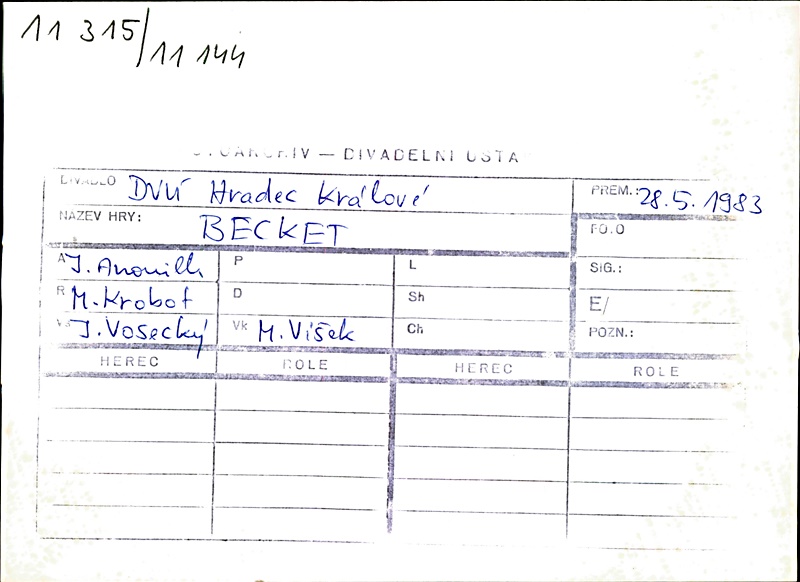 11 315/11 144
— DIVADELNÍ ÚSTA
DIVADLO DVÚ Hradec Králové PREM.: 28.5.1983
NÁZEV HRY: BECKET FOTO
A J. Anouilh P L SIG.:
R M. Krobot D Sh E/
J. Vosecký Vk M. Víšek Ch POZN.:
HEREC ROLE HEREC ROLE